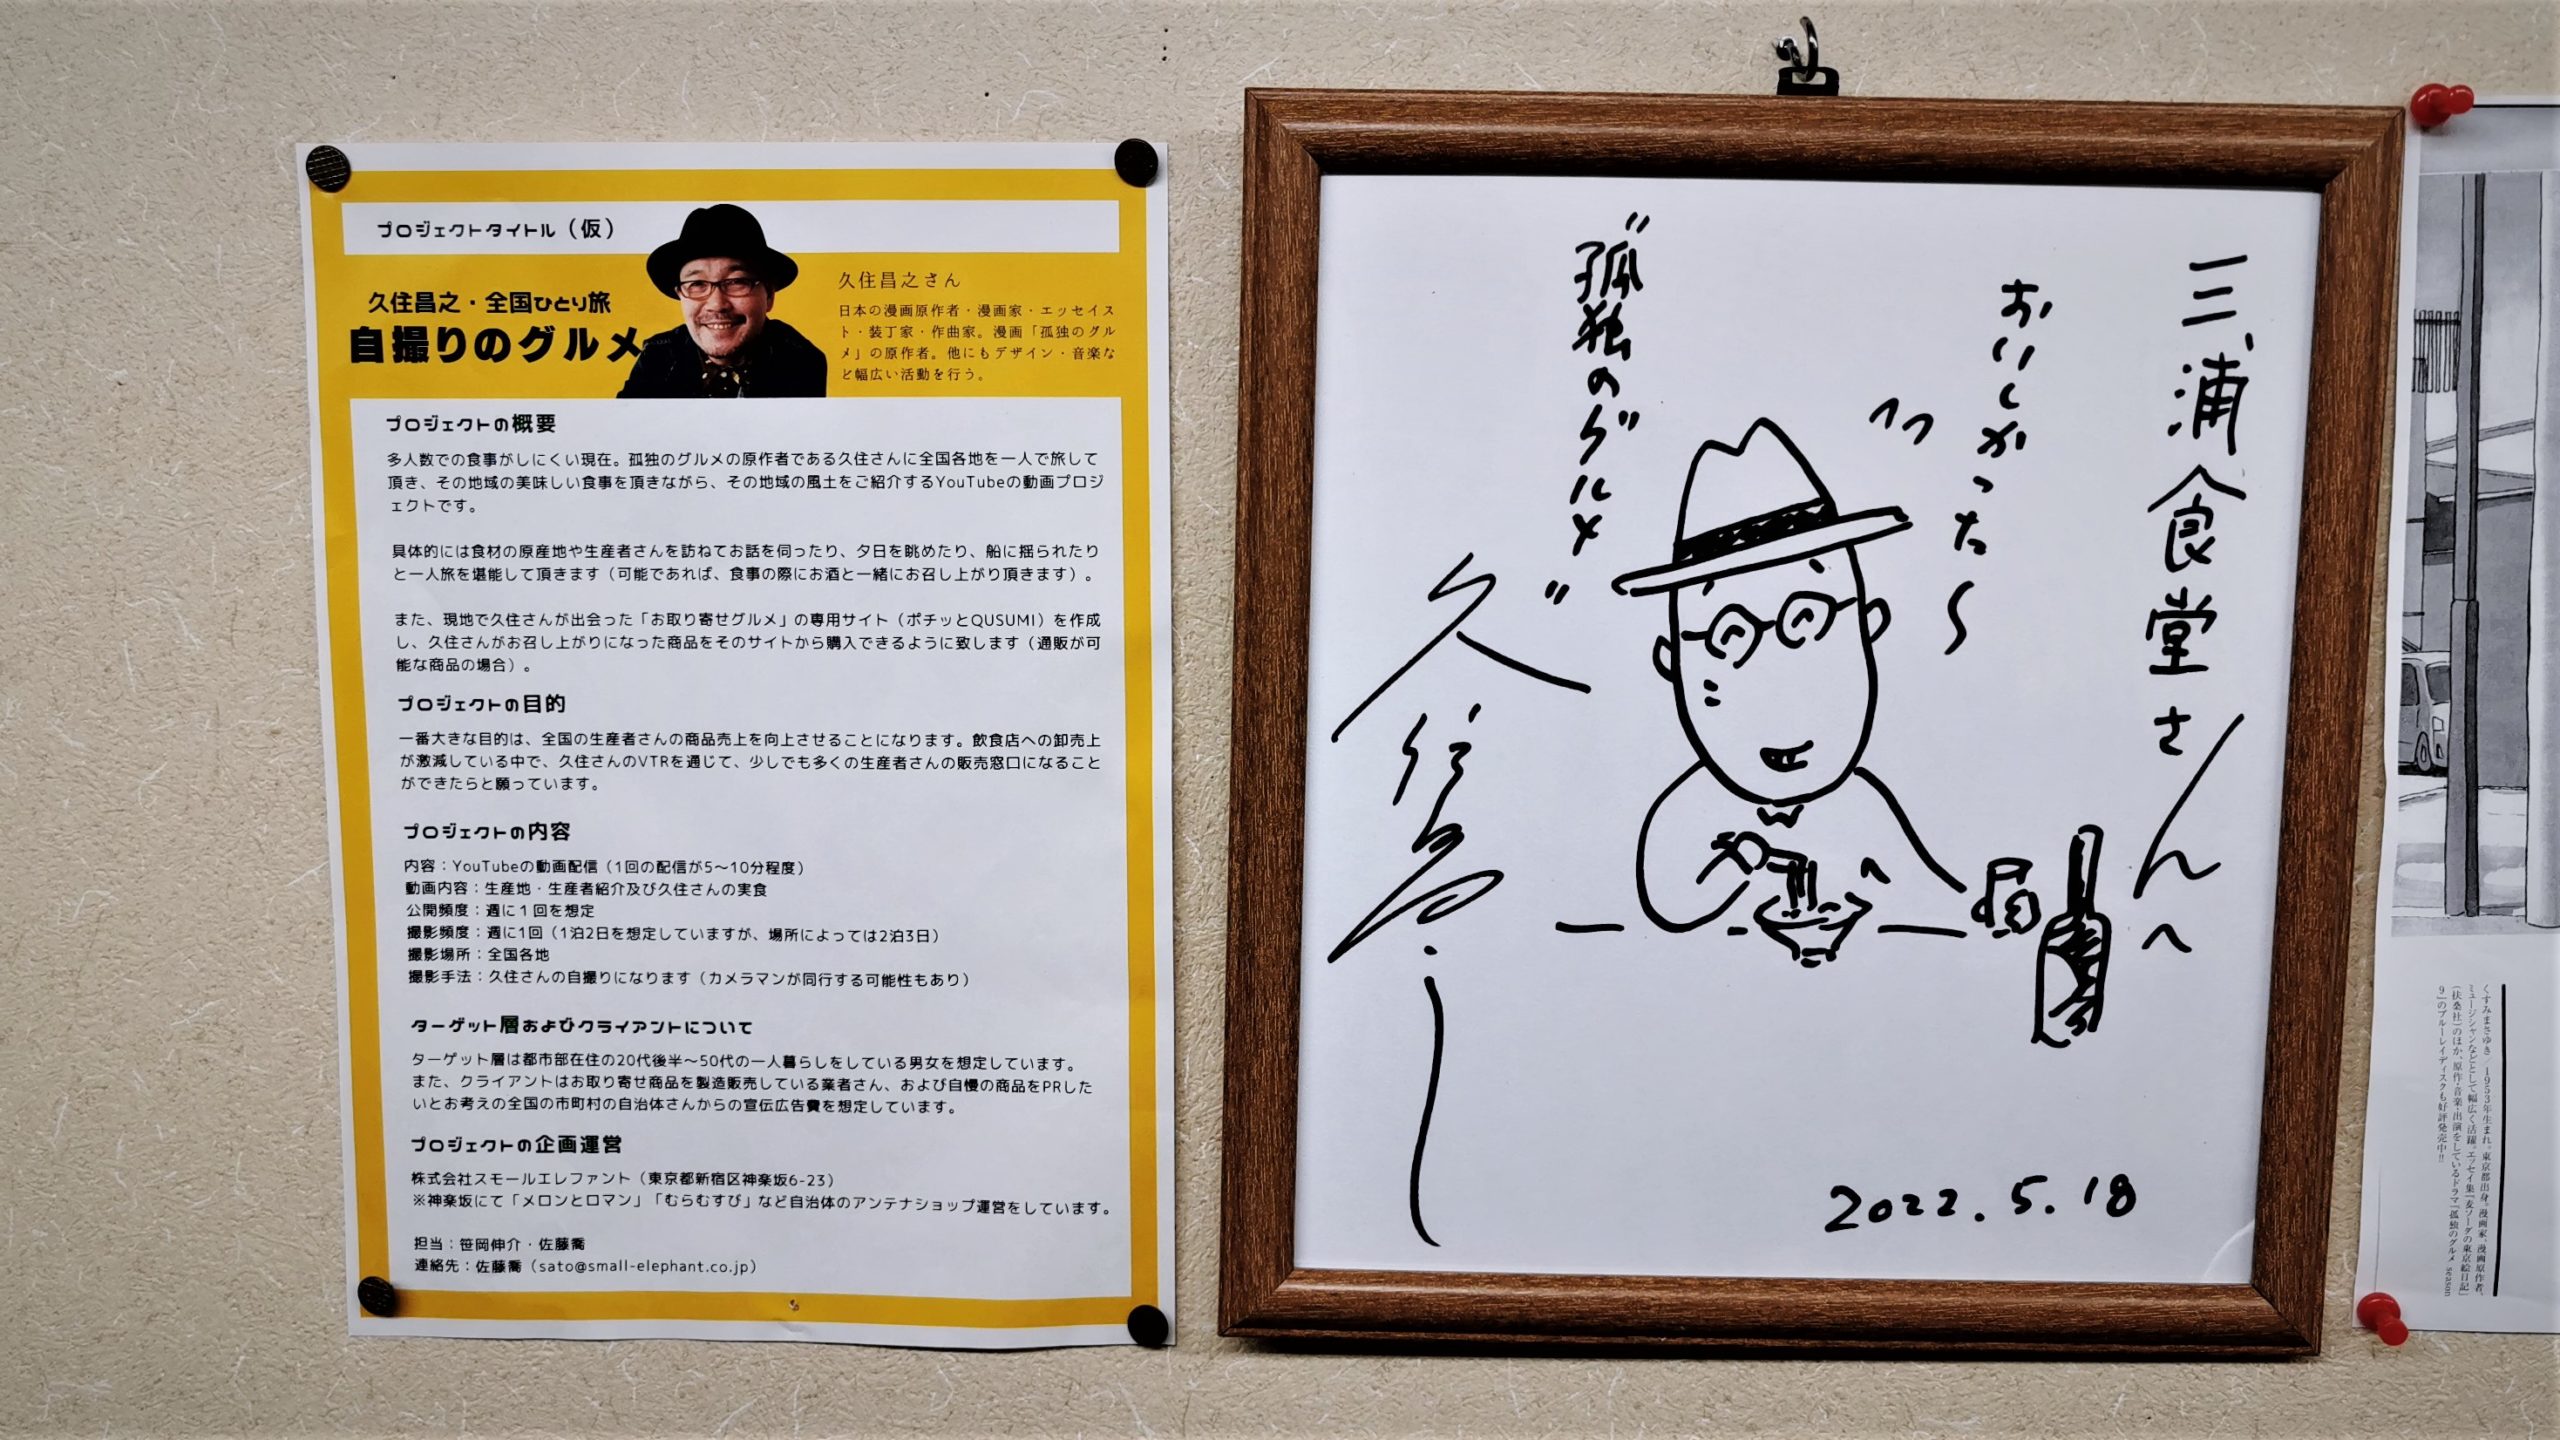 プロジェクトタイトル（仮）
久住昌之・全国ひとり旅
自撮りのグルメ
久住昌之さん
日本の漫画原作者・漫画家・エッセイス
ト・装丁家・作曲家。漫画「孤独のグル
メ」の原作者。他にもデザイン・音楽な
ど幅広い活動を行う。
プロジェクトの概要
多人数での食事がしにくい現在。孤独のグルメの原作者である久住さんに全国各地を一人で旅して
頂き、その地域の美味しい食事を頂きながら、その地域の風土をご紹介するYouTubeの動画プロジ
ェクトです。
具体的には食材の原産地や生産者さんを訪ねてお話を伺ったり、夕日を眺めたり、船に揺られたり
と一人旅を堪能して頂きます（可能であれば、食事の際にお酒と一緒にお召し上がり頂きます）。
また、現地で久住さんが出会った「お取り寄せグルメ」の専用サイト（ポチッとQUSUMI）を作成
し、久住さんがお召し上がりになった商品をそのサイトから購入できるように致します（通販が可
能な商品の場合）。
プロジェクトの目的
一番大きな目的は、全国の生産者さんの商品売上を向上させることになります。飲食店への卸売上
が激減している中で、久住さんのVTRを通じて、少しでも多くの生産者さんの販売窓口になること
ができたらと願っています。
プロジェクトの内容
内容：YouTubeの動画配信（1回の配信が5〜10分程度）
動画内容：生産地・生産者紹介及び久住さんの実食
公開頻度：週に１回を想定
撮影頻度：週に1回（1泊2日を想定していますが、場所によっては2泊3日）
撮影場所：全国各地
撮影手法：久住さんの自撮りになります（カメラマンが同行する可能性もあり）
ターゲット層およびクライアントについて
ターゲット層は都市部在住の20代後半〜50代の一人暮らしをしている男女を想定しています。
また、クライアントはお取り寄せ商品を製造販売している業者さん、および自慢の商品をPRした
いとお考えの全国の市町村の自治体さんからの宣伝広告費を想定しています。
プロジェクトの企画運営
株式会社スモールエレファント（東京都新宿区神楽坂6-23）
※神楽坂にて「メロンとロマン」「むらむすび」など自治体のアンテナショップ運営をしています。
担当：笹岡伸介・佐藤喬
連絡先：佐藤喬（sato@small-elephant.co.jp）
三浦食堂さんへ
おいしかった〜
"孤独のグルメ"
久住昌之
2022.5.18
くすみまさゆき／1953年生まれ。東京都出身。漫画家、漫画原作者、
ミュージシャンなどとして幅広く活躍。エッセイ集『麦ソーダの東京絵日記』
（扶桑社）のほか、原作・音楽・出演をしているドラマ『孤独のグルメ season
9』のブルーレイディスクも好評発売中!!